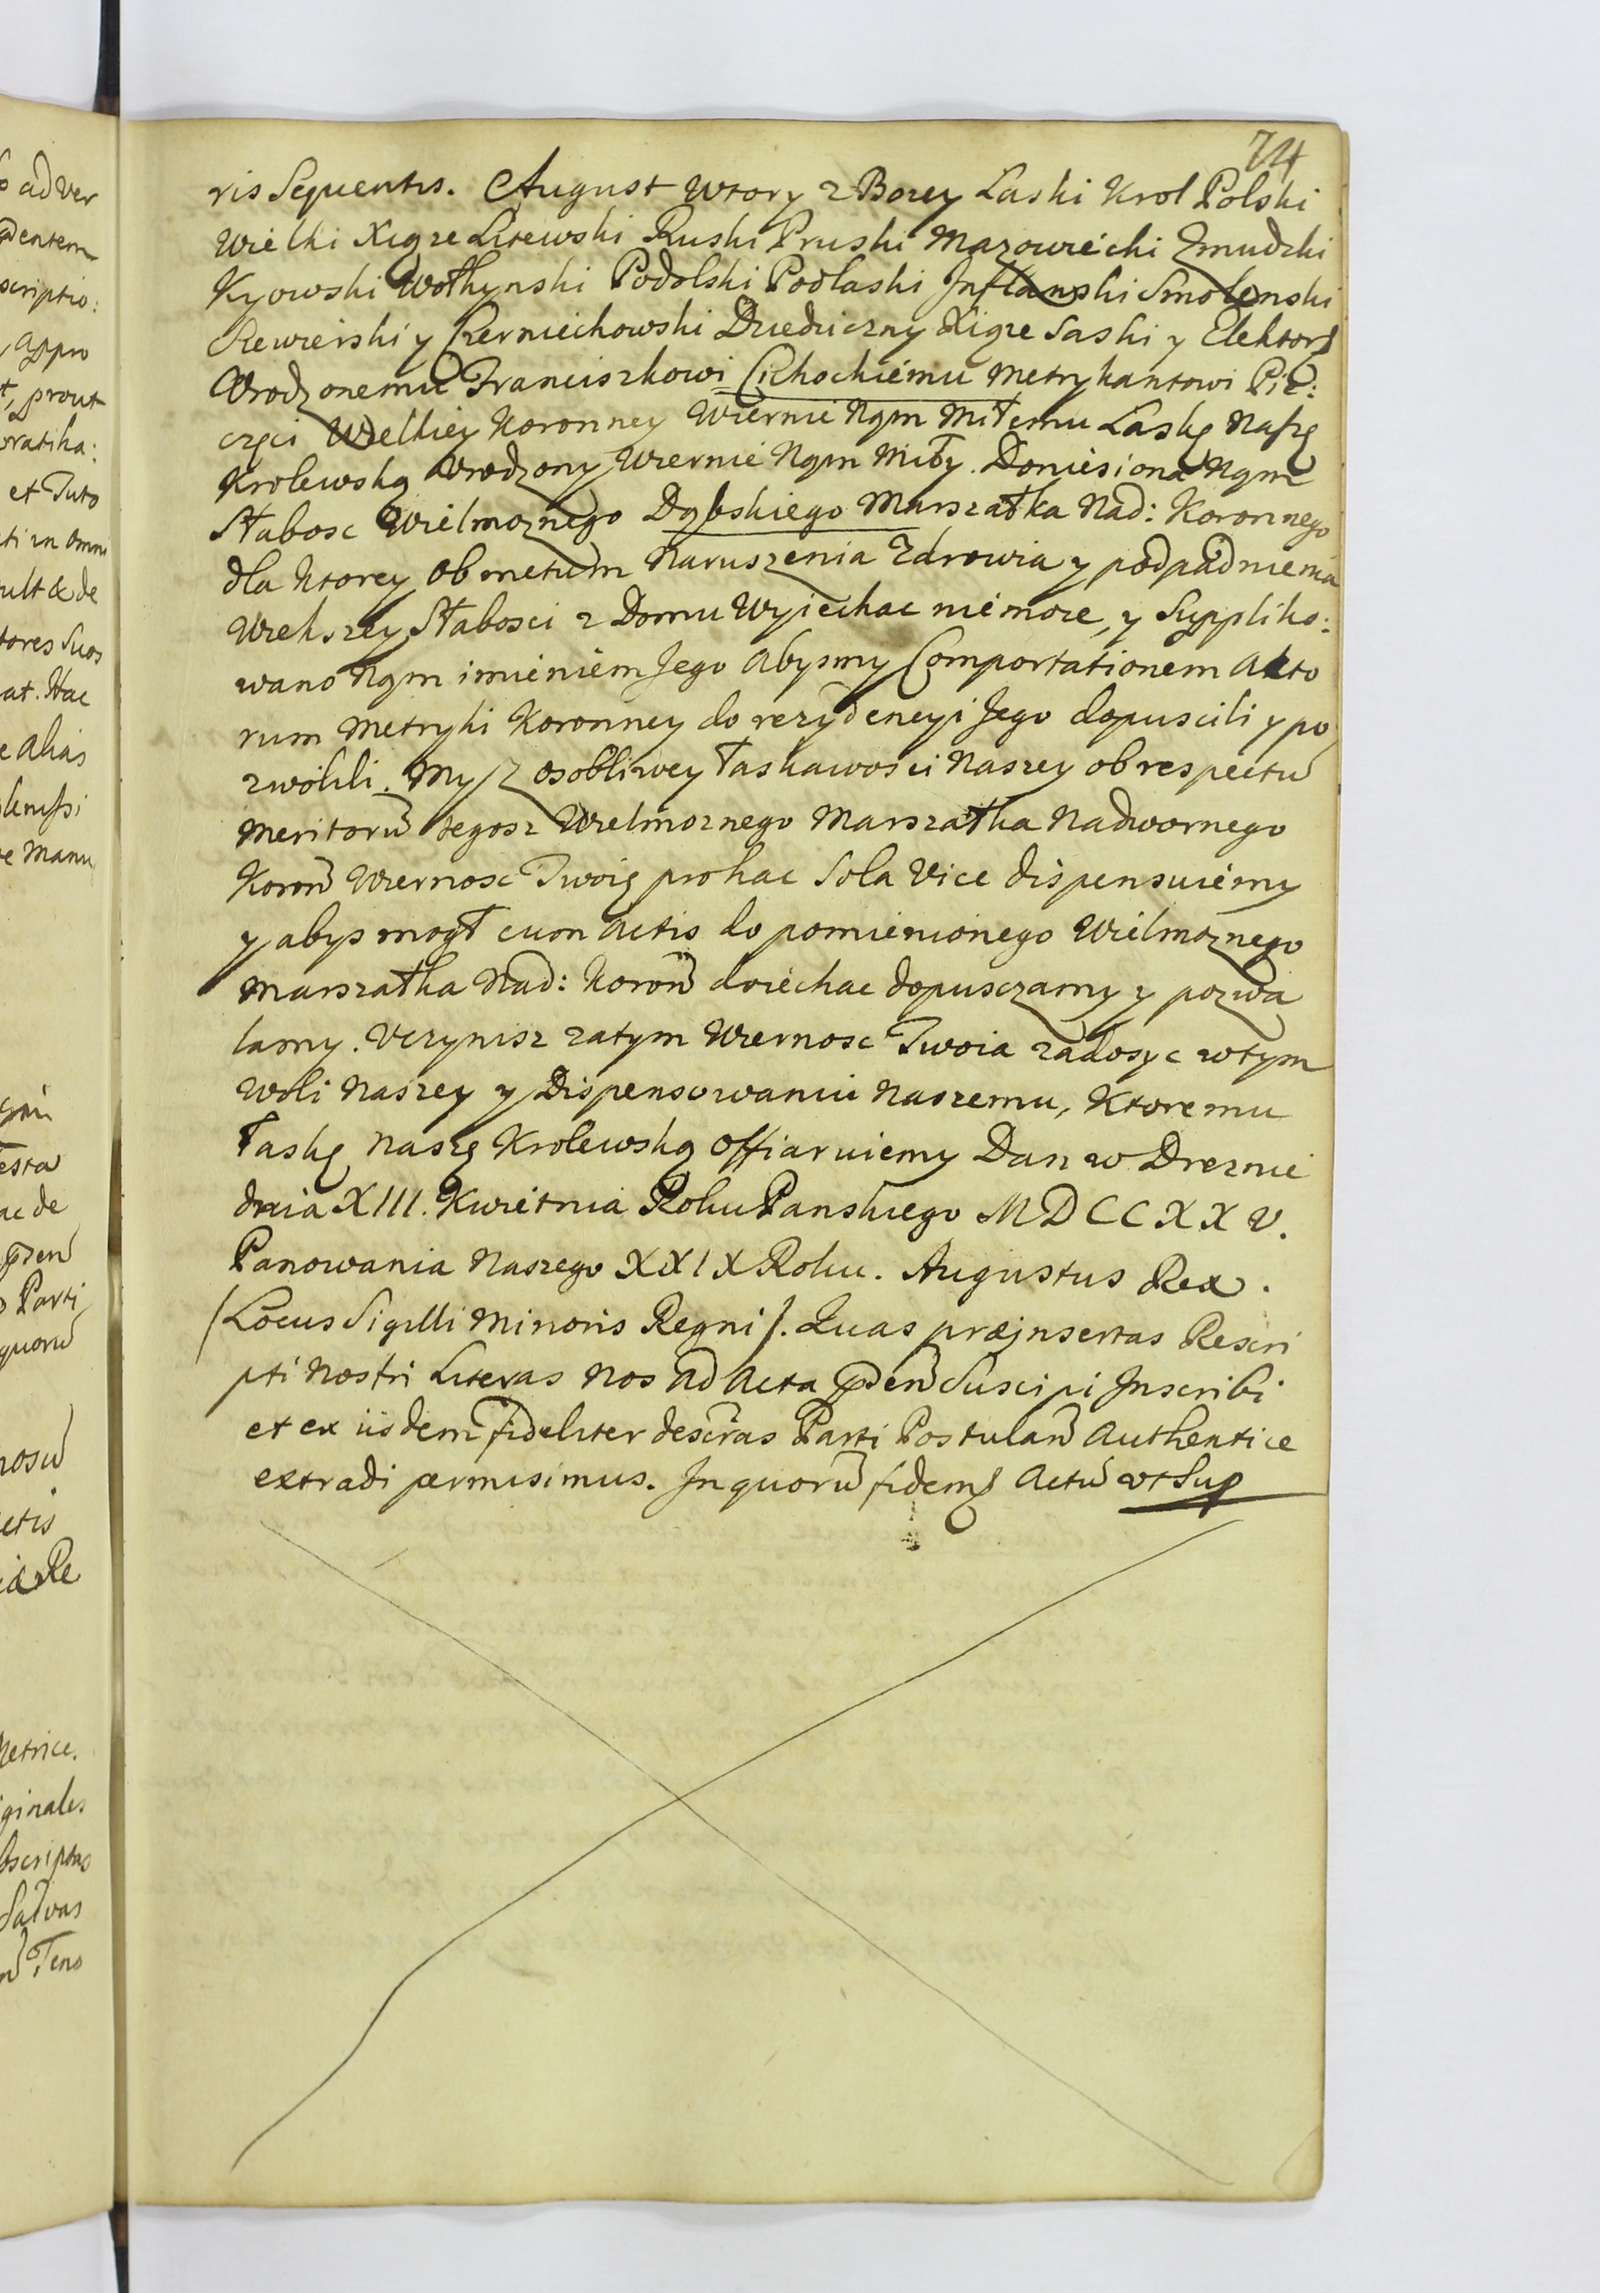 74
ris Sequentis. August Wtory z Bozey Laski Krol Polski
Wielki Xiąze Litewski Ruski Pruski Mazowiecki Zmudzki
Kyowski Wołhynski Podolski Podlaski Inflanski Smolenski
Siewierski y Czerniechowski Dziedziczny Xiąze Saski y Elektor
Urodzonemu Franciszkowi Cichockiemu Metrykantowi Pie:
częci Wielkiey Koronney Wiernie Nąm Miłemu Laskę Naszę
Krolewską Urodzony Wiernie Nąm Miły. Doniesiona Nąm
Słabosc Wielmoznego Dąbskiego Marszałka Nad: Koronnego
dla Ktorey ob metum Naruszenia Zdrowia y podpadnienia
Wiekszey Słabosci z Domu Wyiechac nie moze, y Suppliko:
wano Nąm imieniem Jego Abysmy Comportationem Akto
rum Metryki Koronney do rezydencyi Jego dopuscili y po
zwolili. My z osobliwey łaskawosci Naszey ob respectu
Meritorū tegosz Wielmoznego Marszałka Nadwornego
Koron̄ Wiernosc Twoię pro hac Sola Vice dispensuiemy
y abys mogł cum Actis do pomienionego Wielmoznego
Marszałka Nad: Koron̄ doiechac dopusczamy y pozwa
lamy. Uczynisz zatym Wiernosc Twoia zadosyc w tym
Woli Naszey y Dispensowaniu Naszemu, Ktoremu
łaskę Naszę Krolewską offiaruiemy Dan w Dreznie
dnia XIII. Kwietnia Roku Panskiego MDCCXXV.
Panowania Naszego XXIX Roku. Augustus Rex.
(Locus Sigilli Minoris Regni). Quas præjnsertas Rescri
pti Nostri Literas Nos ad Acta p̄sen̄ Suscipi Inscribi
et ex iisdem fideliter descr̄as Parti Postulan̄ Authentice
extradi permisimus. In quorū fidem Actū vt Sup
ad Ver
dentem
scriptio:
appro
prout
et Tuto
in omni
de
tores Suos
at. Hac
alias
Manu
ac de
Parti
quorū
etis
Re
Metrice.
ginales
Salvas
Teno